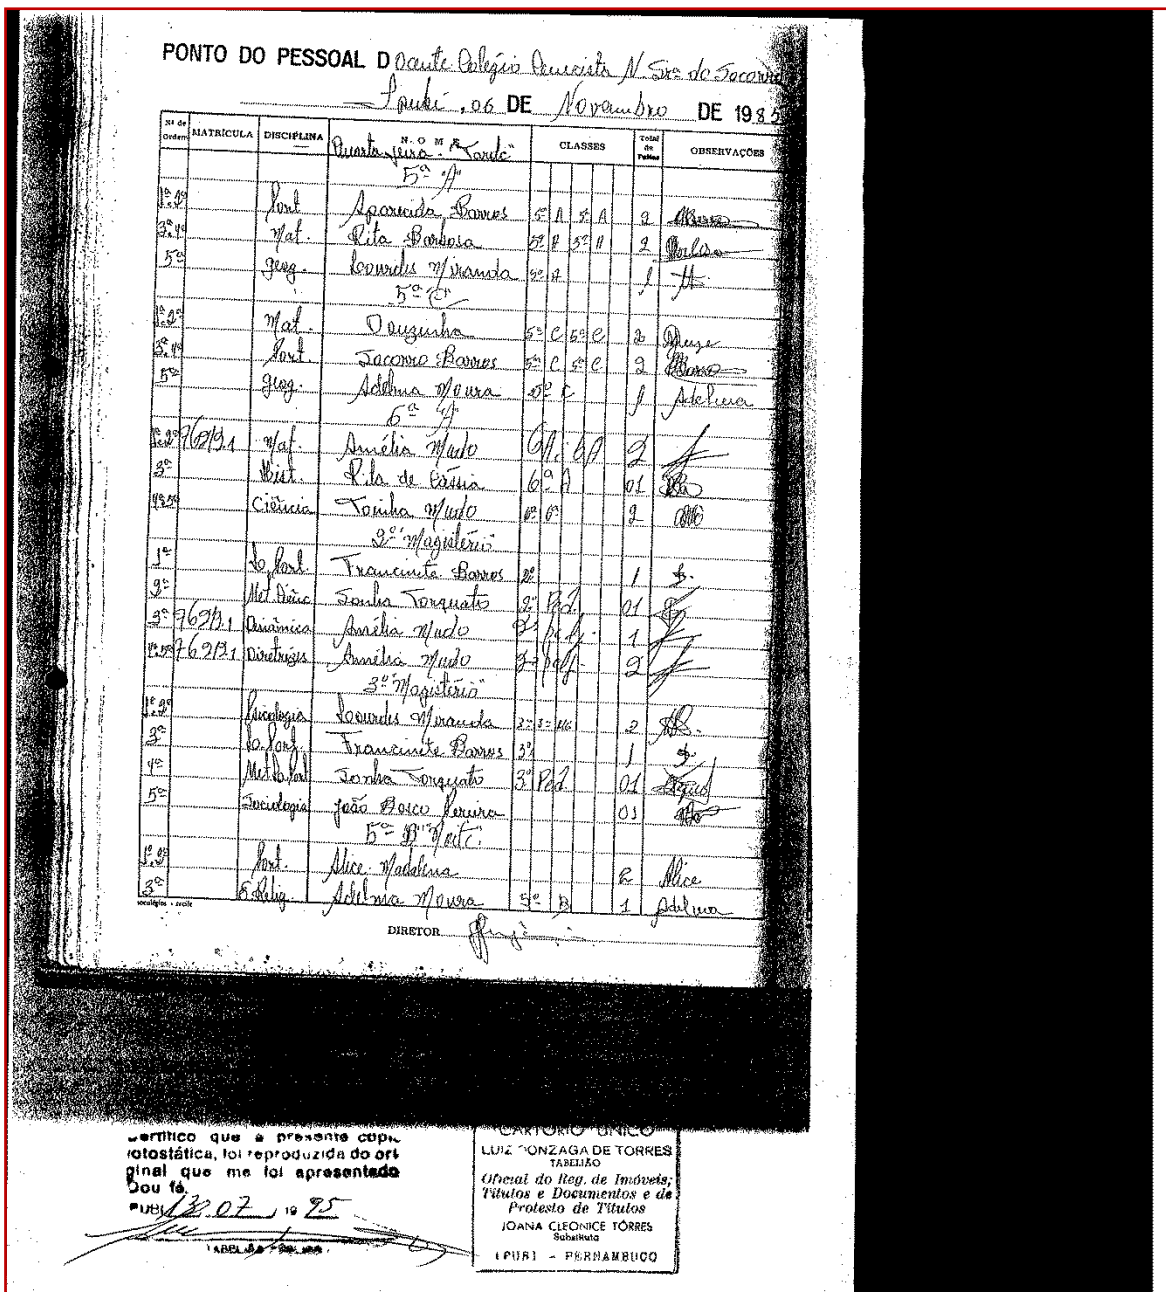 PONTO DO PESSOAL Docente Colégio Cenecista N. Srª do Socorro
Ipubi, 06 DE Novembro DE 1985
Nº de Ordem MATRÍCULA DISCIPLINA NOME CLASSES Total de Faltas OBSERVAÇÕES
Quarta feira - "Tarde"
5ª "A"
1ª.2ª Port Aparecida Barros 5ª A 5ª A 2
3ª.4ª Mat. Rita Barbosa 5ª A 5ª A 2
5ª geog. Lourdes Miranda 5ª A 1
5ª "C"
1ª.2ª Mat. Douzinha 5ª C 5ª C 2
3ª.4ª Port. Socorro Barros 5ª C 5ª C 2
5ª geog. Adelma Moura 5ª C 1 Adelma
6ª "A"
1ª.2ª Mat. Amélia Mudo 6A. 6A 2
3ª Hist. Rita de Cássia 6ª A 01
4ª 5ª Ciência Toinha Mudo 6ª 6ª 2
2º "Magistério"
1ª L. Port. Francinete Barros 2º 1
2ª Sonha Torquato 2º Ped. 01
3ª Dinâmica Amélia Mudo 2º 1
Diretrizes Amélia Mudo 2º 2
3º "Magistério"
1ª.2ª Psicologia Lourdes Miranda 3º 3º 2
3ª L. Port. Francinete Barros 3º 1
4ª Sonha Torquato 3º Ped. 01
5ª Sociologia João Bosco Pereira 01
5ª "B"
1ª.2ª Port. Alice Madalena 2 Alice
3ª E. Relig. Adelma Moura 5ª B 1 Adelma
DIRETOR
Certifico que a presente cópia
fotostática, foi reproduzida do ori
ginal que me foi apresentado
Dou fé.
IPUBI 13.07 19 95
CARTÓRIO ÚNICO
LUIZ GONZAGA DE TORRES
TABELIÃO
Oficial do Reg. de Imóveis;
Títulos e Documentos e de
Protesto de Títulos
JOANA CLEONICE TÔRRES
Substituta
IPUBI - PERNAMBUCO